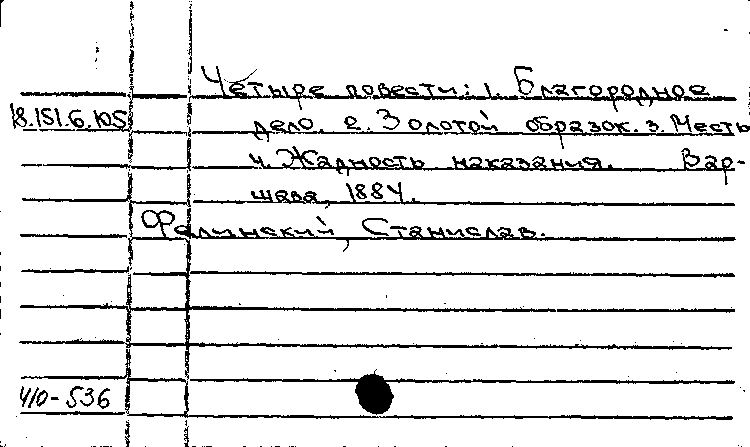 Четыре повести: 1. Благородное
18.151.6.105 дело. 2. Золотой образок. 3. Месть
4. Жадность наказания. Вар-
шава, 1884.
Фалинский, Станислав.
410-536